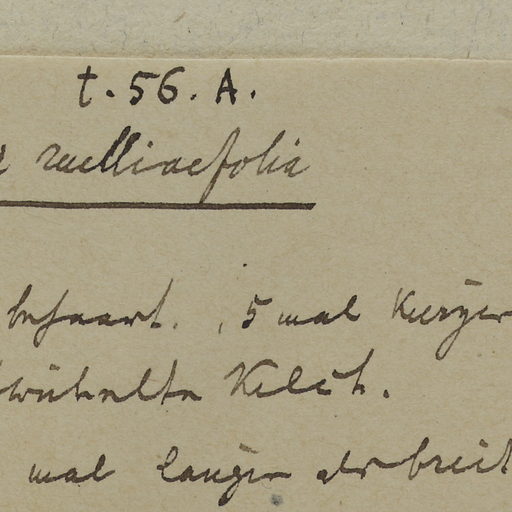 t. 56. A.
ruelliaefolia
behaart. 5 mal kürzer
Kelch.
mal länger als breit